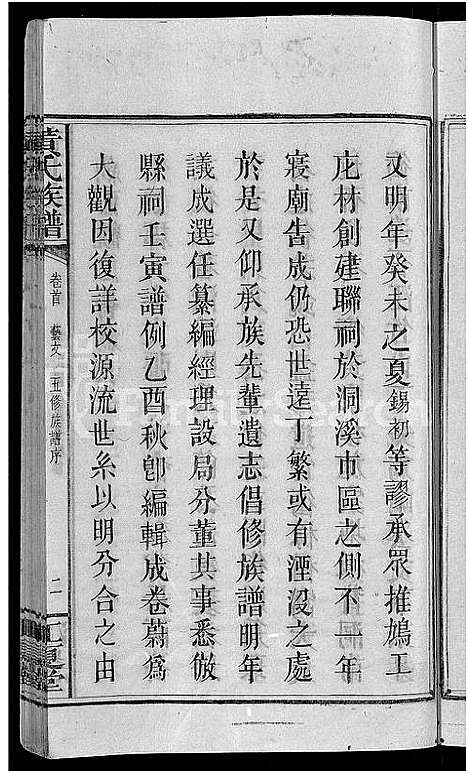 又明年癸未之夏錫初等謬承眾推鳩工
庀材創建聯祠於洞溪市區之側不一年
寢廟告成仍恐世遠丁繁或有湮沒之處
於是又仰承族先輩遺志倡修族譜明年
議成選任纂編經理設局分董其事悉倣
縣祠壬寅譜例乙酉秋卽編輯成卷蔚爲
大觀因復詳校源流世系以明分合之由
黃氏族譜
卷首 藝文 五修族譜序
二